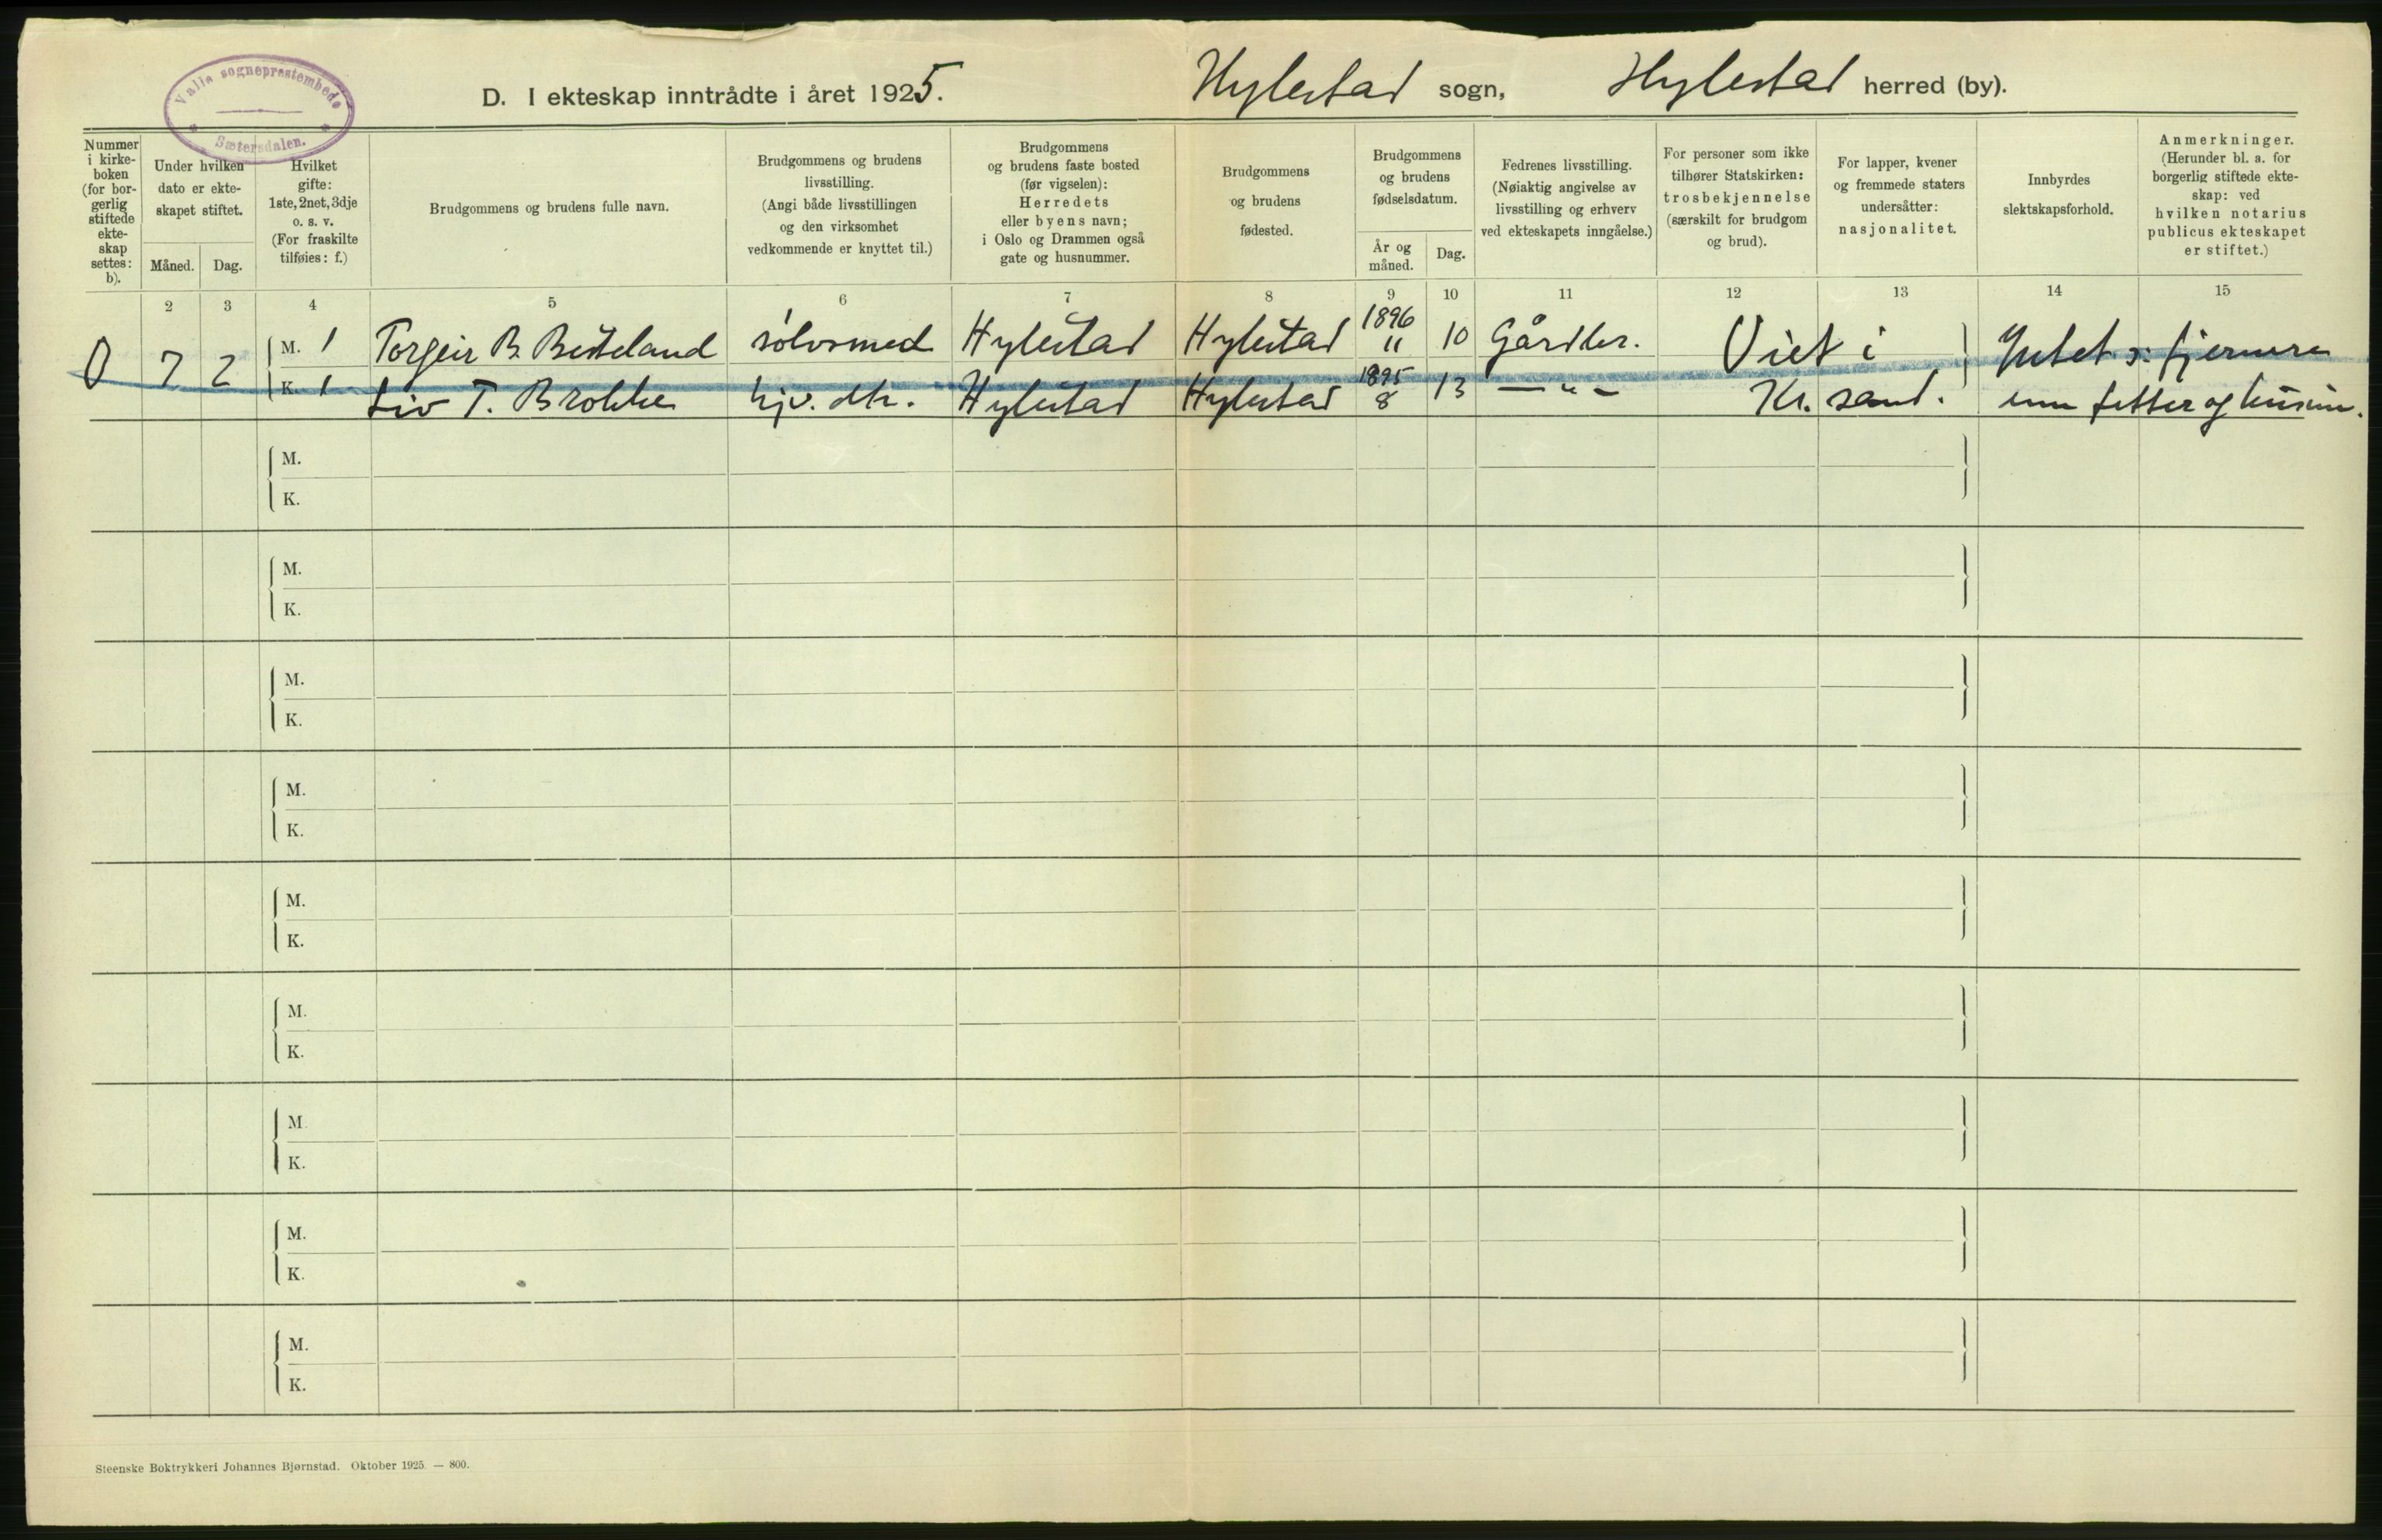 Valle sogneprestembede
Sætersdalen.
D. I ekteskap inntrådte i året 1925.
Hylestad sogn, Hylestad herred (by).
Nummer
i kirke-
boken
(for bor-
gerlig
stiftede
ekte-
skap
settes:
b).
Under hvilken
dato er ekte-
skapet stiftet.
Måned. Dag.
Hvilket
gifte:
1ste, 2net, 3dje
o. s. v.
(For fraskilte
tilføies: f.)
Brudgommens og brudens fulle navn.
Brudgommens og brudens
livsstilling.
(Angi både livsstillingen
og den virksomhet
vedkommende er knyttet til.)
Brudgommens
og brudens faste bosted
(før vigselen):
Herredets
eller byens navn;
i Oslo og Drammen også
gate og husnummer.
Brudgommens
og brudens
fødested.
Brudgommens
og brudens
fødselsdatum.
År og
måned.
Dag.
Fedrenes livsstilling.
(Nøiaktig angivelse av
livsstilling og erhverv
ved ekteskapets inngåelse.)
For personer som ikke
tilhører Statskirken:
trosbekjennelse
(særskilt for brudgom
og brud).
For lapper, kvener
og fremmede staters
undersåtter:
nasjonalitet.
Innbyrdes
slektskapsforhold.
Anmerkninger.
(Herunder bl. a. for
borgerlig stiftede ekte-
skap: ved
hvilken notarius
publicus ekteskapet
er stiftet.)
2 3 4 5 6 7 8 9 10 11 12 13 14 15
0 7 2 M. 1 Torgeir B. Besteland sølvsmed Hylestad Hylestad 1896 11 10 Gårdbr. Viet i Intet ɔ: fjernere
K. 1 Liv T. Brokke hjv. dtr. Hylestad Hylestad 1895 8 13 — " — Kr. sand. enn fetter og kusine.
M.
K.
M.
K.
M.
K.
M.
K.
M.
K.
M.
K.
M.
K.
M.
K.
M.
K.
Steenske Boktrykkeri Johannes Bjørnstad. Oktober 1925. — 800.